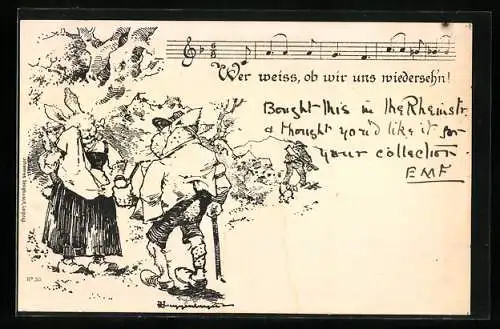 Wer weiss, ob wir uns wiedersehn!
Bought this in the Rheinstr.
& thought you'd like it for
your collection.
EMF
Nº 30